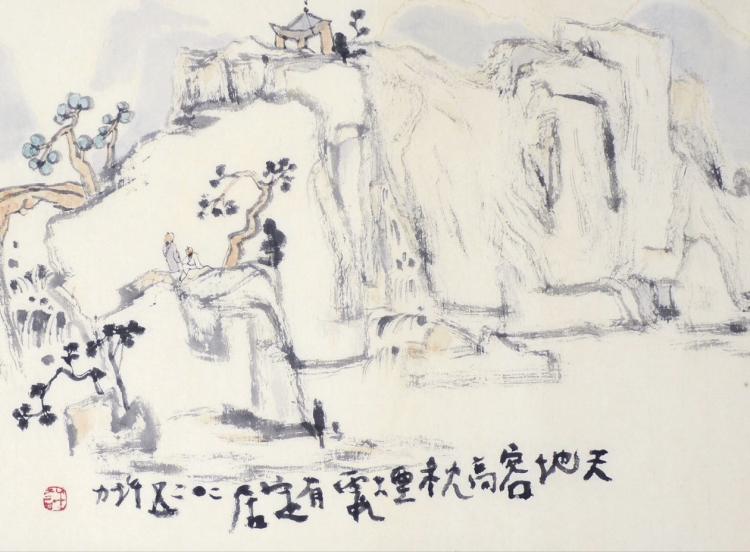 天地容高枕煙霞有定居二〇二五许力